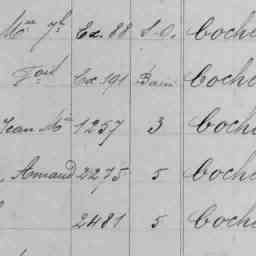 Mie 7h Ex. 88 S.O. Coche
Foul Ex 191 Bain Coche
Jean Mie 1257 3 Coche
Amand 2275 5 Coche
2481 5 Coche